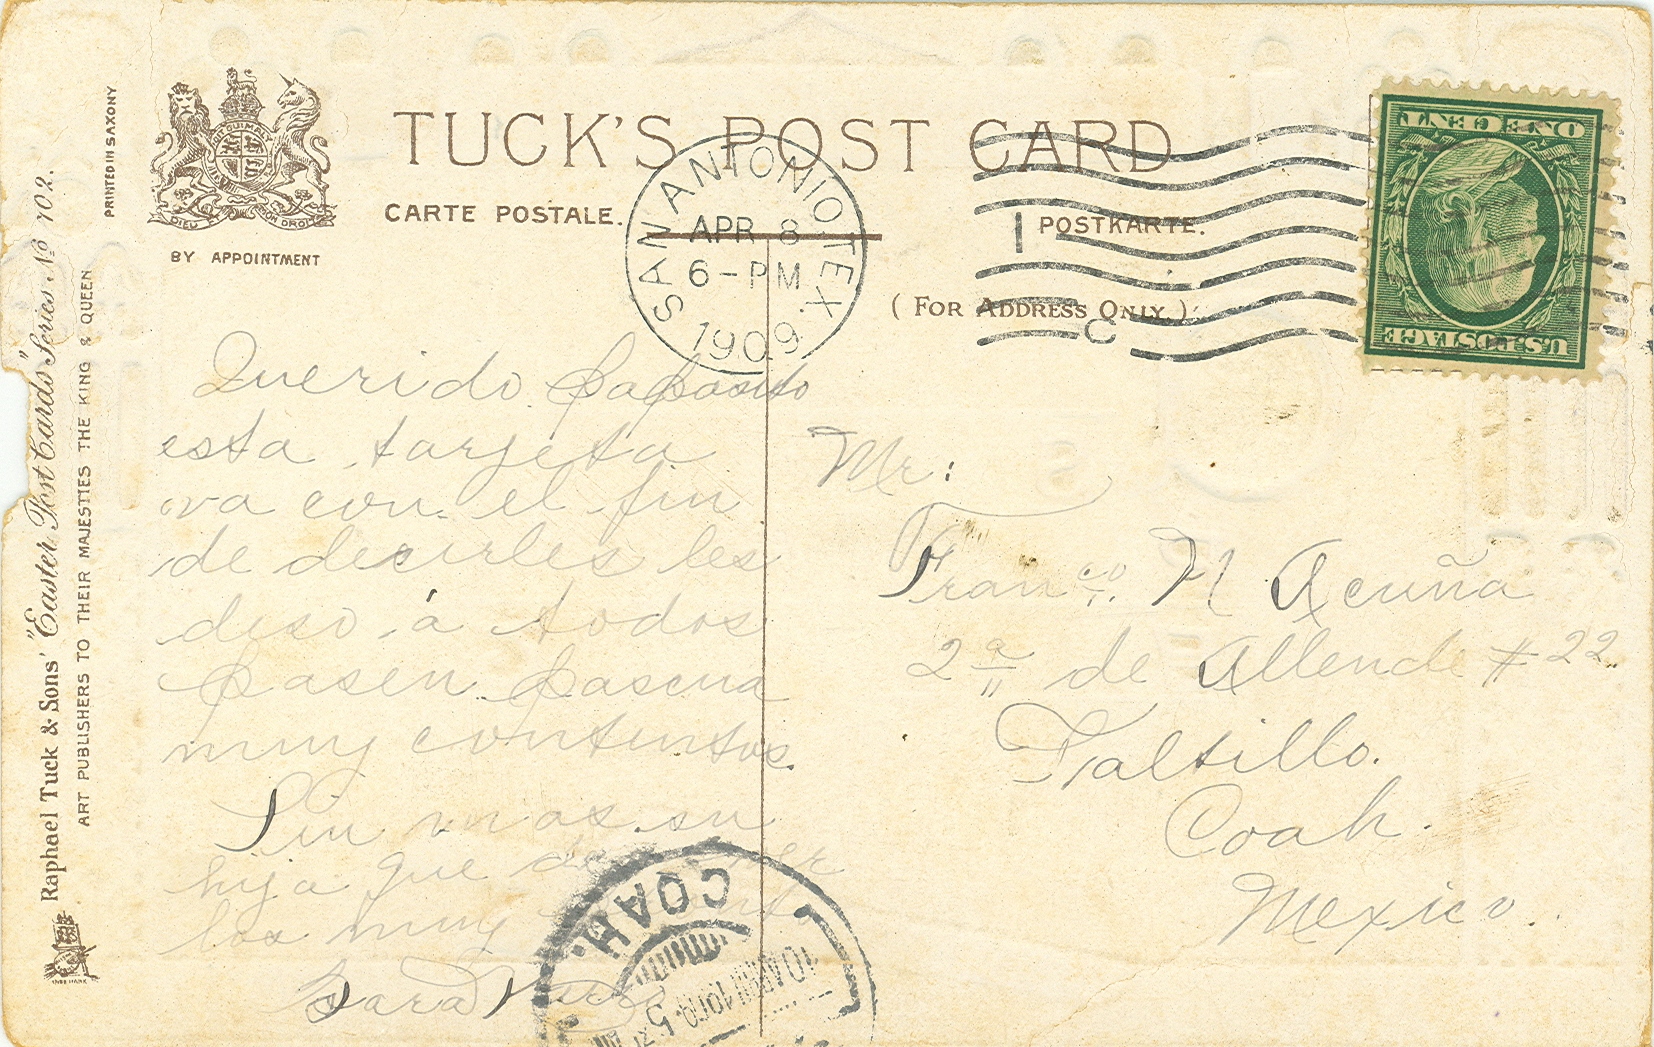 TUCK'S POST CARD
CARTE POSTALE.
POSTKARTE.
BY APPOINTMENT
(FOR ADDRESS ONLY.)
SAN ANTONIO, TEX.
APR 8
6-PM
1909
1
C
ONE CENT
U.S. POSTAGE
PRINTED IN SAXONY
Raphael Tuck & Sons' "Easter Post Cards" Series No 702.
ART PUBLISHERS TO THEIR MAJESTIES THE KING & QUEEN
Querido Papasito
esta tarjeta
va con el fin
de decirles les
deso á todos
pasen pascua
muy contentos.
Sin mas su
hija que
los muy
Sara
Mr:
Franco. N Acuña
2a de Allende # 22
Saltillo.
Coah.
Mexico.
COAH.
10 ABR
DIEU
MON DROIT